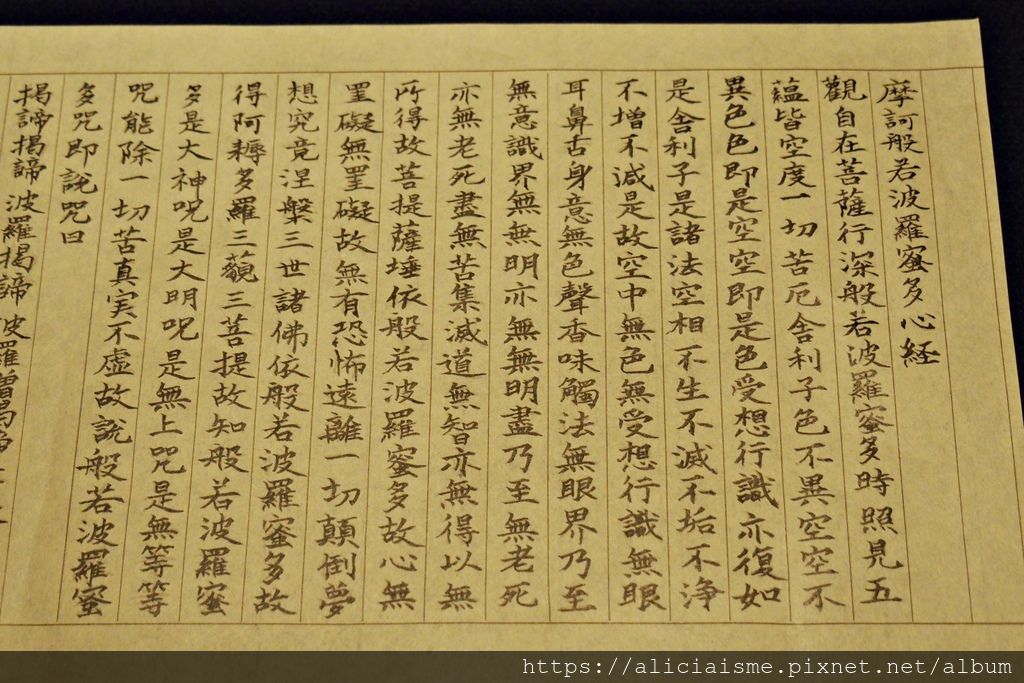 摩訶般若波羅蜜多心経
觀自在菩薩行深般若波羅蜜多時照見五
蘊皆空度一切苦厄舎利子色不異空空不
異色色即是空空即是色受想行識亦復如
是舎利子是諸法空相不生不滅不垢不浄
不增不減是故空中無色無受想行識無眼
耳鼻舌身意無色聲香味觸法無眼界乃至
無意識界無無明亦無無明盡乃至無老死
亦無老死盡無苦集滅道無智亦無得以無
所得故菩提薩埵依般若波羅蜜多故心無
罣礙無罣礙故無有恐怖遠離一切顛倒夢
想究竟涅槃三世諸佛依般若波羅蜜多故
得阿耨多羅三藐三菩提故知般若波羅蜜
多是大神咒是大明咒是無上咒是無等等
咒能除一切苦真実不虛故說般若波羅蜜
多咒即說咒曰
揭諦揭諦波羅揭諦波羅僧揭諦
https://aliciaisme.pixnet.net/album